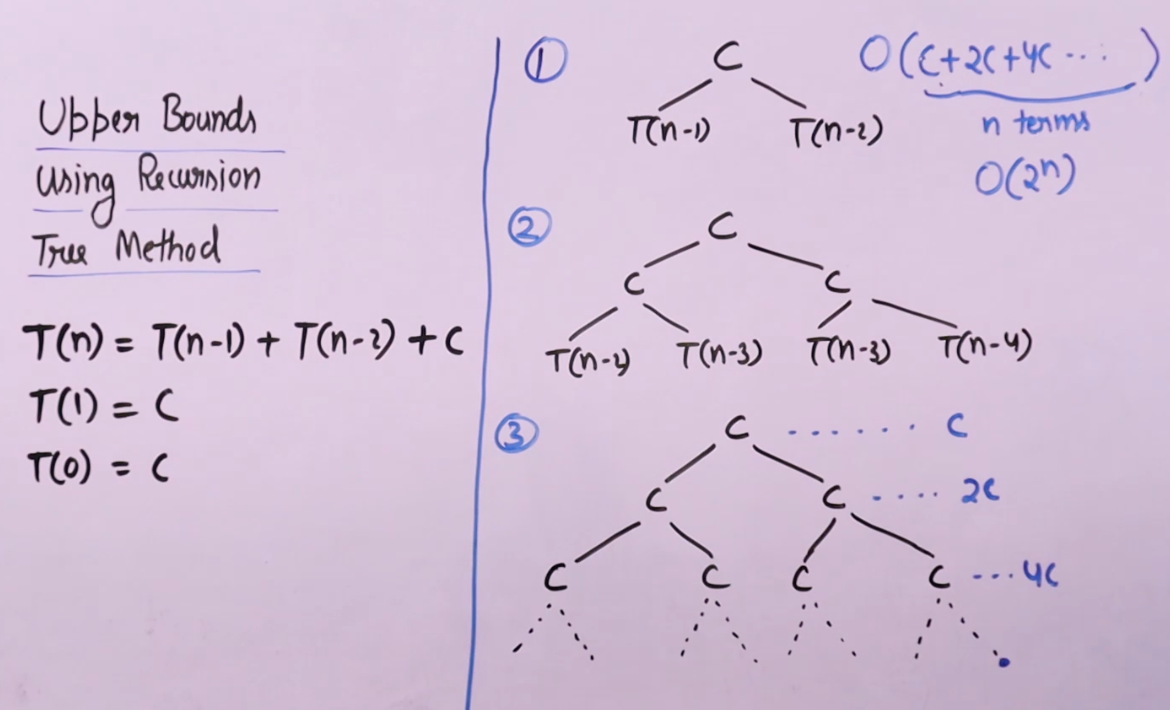 Upper Bounds
Using Recursion
Tree Method
T(n) = T(n-1) + T(n-2) + C
T(1) = C
T(0) = C
① C O(C+2C+4C ... )
T(n-1) T(n-2) n terms
O(2ⁿ)
② C
C C
T(n-2) T(n-3) T(n-3) T(n-4)
③ C ...... C
C C .... 2C
C C C C ... 4C